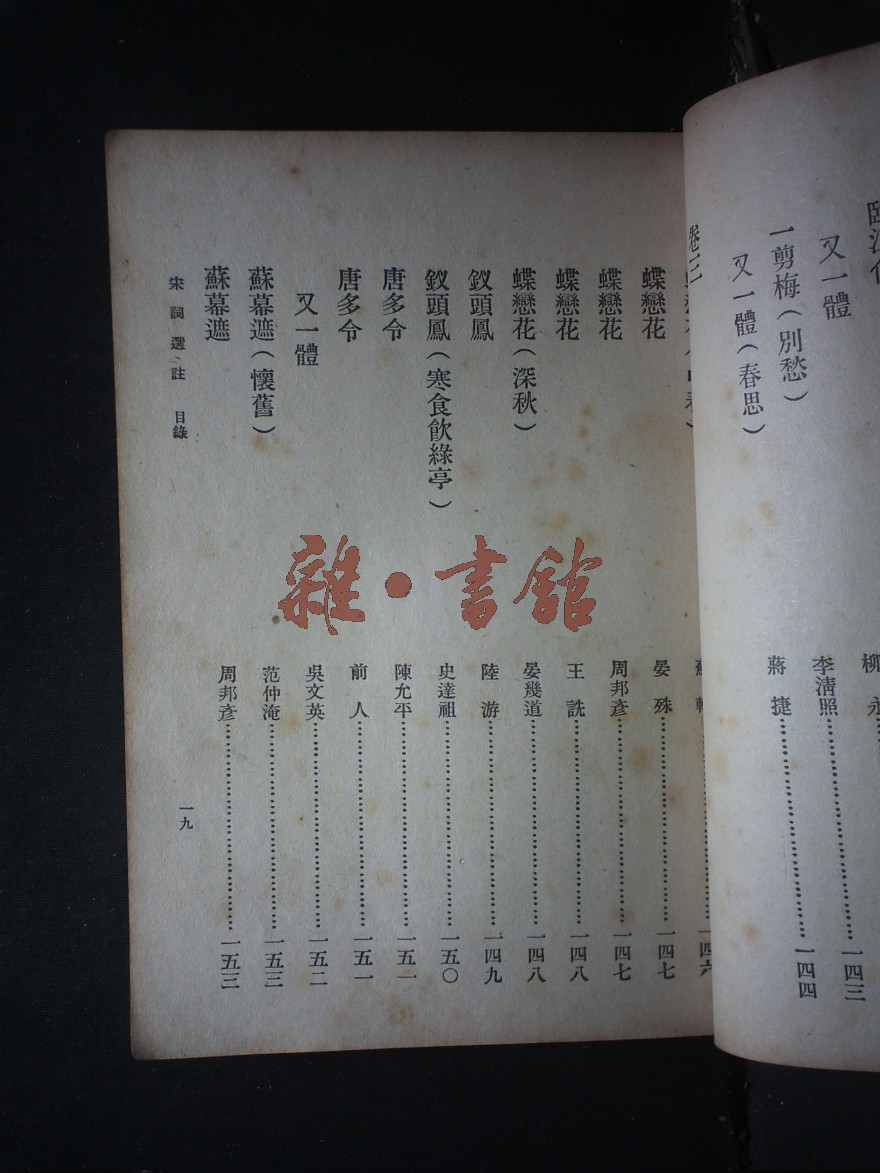 又一體
一剪梅（別愁）
又一體（春思）
柳永
李清照……一四三
蔣捷……一四四
卷三
一四六
蝶戀花 晏殊……一四七
蝶戀花 周邦彥……一四七
蝶戀花 王詵……一四八
蝶戀花（深秋） 晏幾道……一四八
釵頭鳳 陸游……一四九
釵頭鳳（寒食飲綠亭） 史達祖……一五〇
唐多令 陳允平……一五一
唐多令 前人……一五一
又一體 吳文英……一五二
蘇幕遮（懷舊） 范仲淹……一五三
蘇幕遮 周邦彥……一五三
宋詞選註 目錄
一九
雜·書館